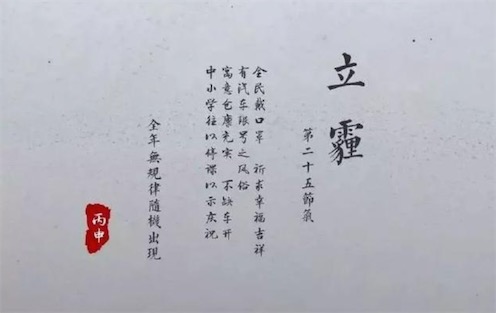 立霾
第二十五節氣
全民戴口罩 祈求幸福吉祥
有汽车限号之风俗
寓意仓康充实 不缺车开
中小学往以停课以示庆祝
全年無規律隨機出現
丙申